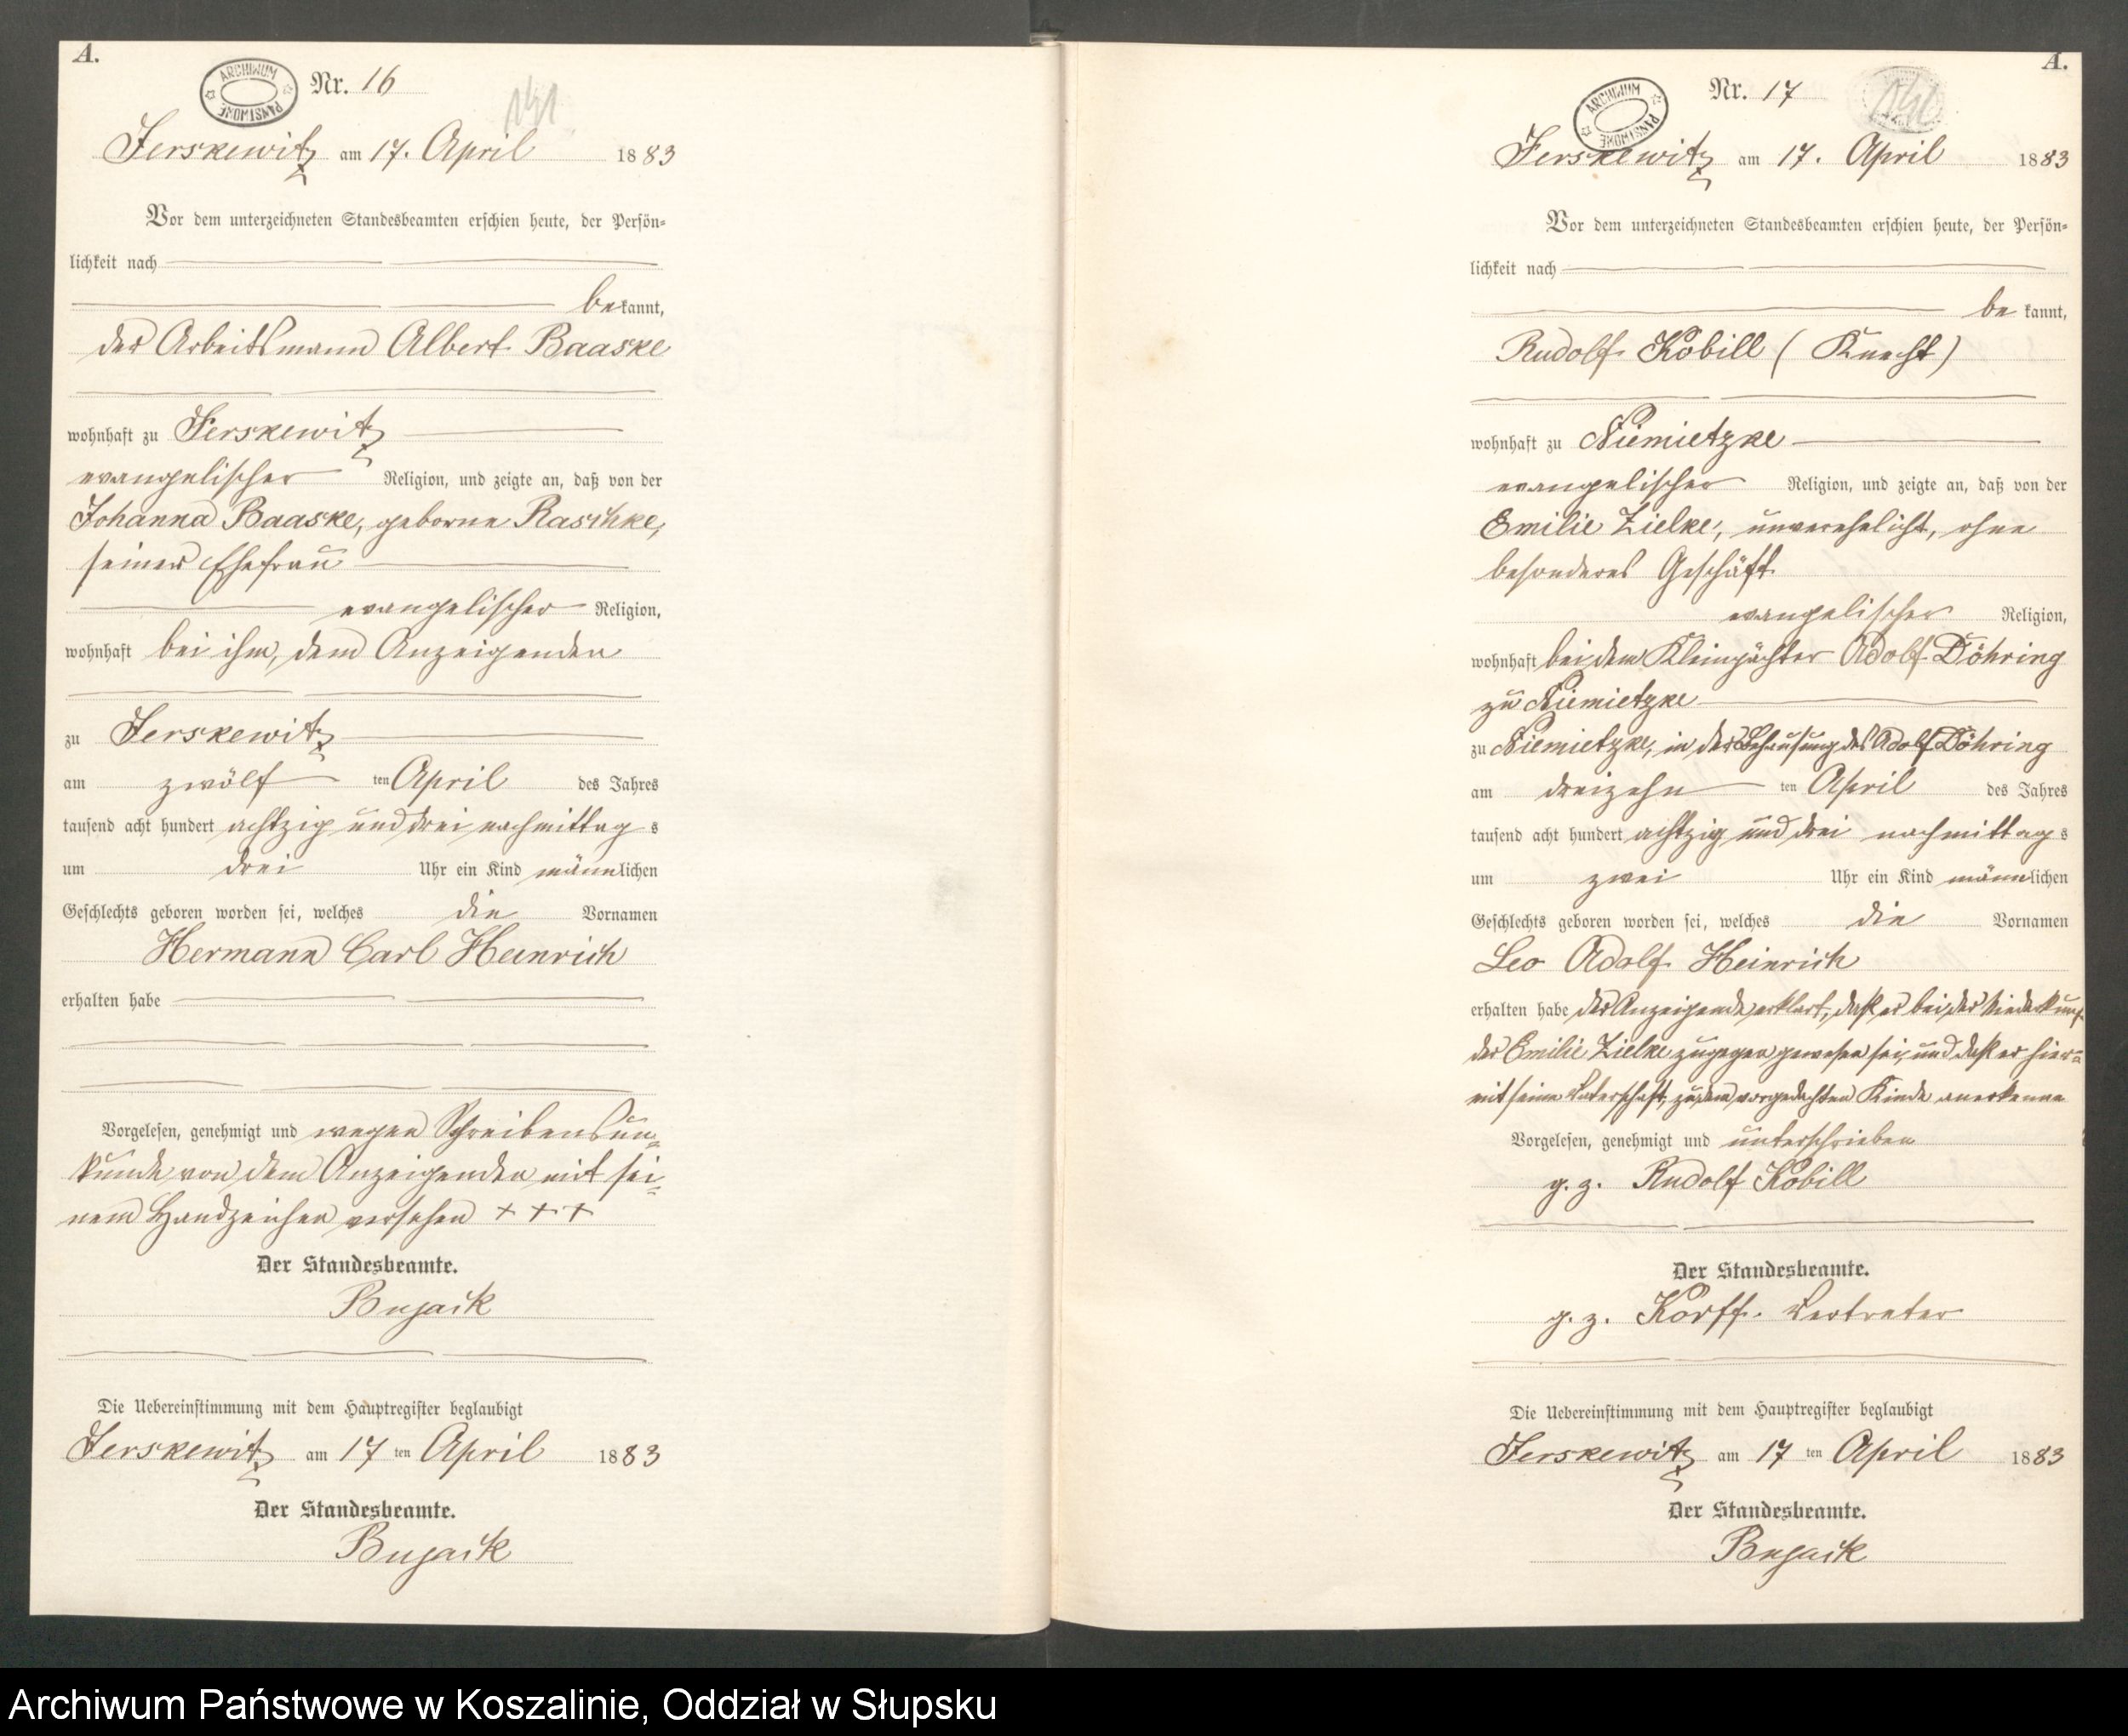 A.
ARCHIWUM PAŃSTWOWE
Nr. 16
Jerskewitz am 17. April 1883
Vor dem unterzeichneten Standesbeamten erschien heute, der Persön-
lichkeit nach
bekannt,
der Arbeitsmann Albert Baaske
wohnhaft zu Jerskewitz
evangelischer Religion, und zeigte an, daß von der
Johanna Baaske, geborne Raschke,
seiner Ehefrau
evangelischer Religion,
wohnhaft bei ihm, dem Anzeigenden
zu Jerskewitz
am zwölf ten April des Jahres
tausend acht hundert achtzig und drei nachmittags
um drei Uhr ein Kind männlichen
Geschlechts geboren worden sei, welches die Vornamen
Hermann Carl Heinrich
erhalten habe
Vorgelesen, genehmigt und wegen Schreibensun-
kunde von dem Anzeigenden mit sei-
nem Handzeichen versehen + + +
Der Standesbeamte.
Bujack
Die Uebereinstimmung mit dem Hauptregister beglaubigt
Jerskewitz am 17 ten April 1883
Der Standesbeamte.
Bujack
A.
ARCHIWUM PAŃSTWOWE
Nr. 17
Jerskewitz am 17. April 1883
Vor dem unterzeichneten Standesbeamten erschien heute, der Persön-
lichkeit nach
be kannt,
Rudolf Kobill (Knecht)
wohnhaft zu Niemietzke
evangelischer Religion, und zeigte an, daß von der
Emilie Zielke, unverehelicht, ohne
besonderes Geschäft
evangelischer Religion,
wohnhaft bei dem Kleinpächter Adolf Döhring
zu Niemietzke
zu Niemietzke, in der Behausung des Adolf Döhring
am dreizehn ten April des Jahres
tausend acht hundert achtzig und drei nachmittags
um zwei Uhr ein Kind männlichen
Geschlechts geboren worden sei, welches die Vornamen
Leo Adolf Heinrich
erhalten habe der Anzeigende erklärt, daß er bei der Niederkunft
der Emilie Zielke zugegen gewesen sei, und daß er hier-
mit seine Vaterschaft, zu dem vorgedachten Kinde anerkenne
Vorgelesen, genehmigt und unterschrieben
g. z. Rudolf Kobill
Der Standesbeamte.
g. z. Korff. Vertreter
Die Uebereinstimmung mit dem Hauptregister beglaubigt
Jerskewitz am 17 ten April 1883
Der Standesbeamte.
Bujack
Archiwum Państwowe w Koszalinie, Oddział w Słupsku